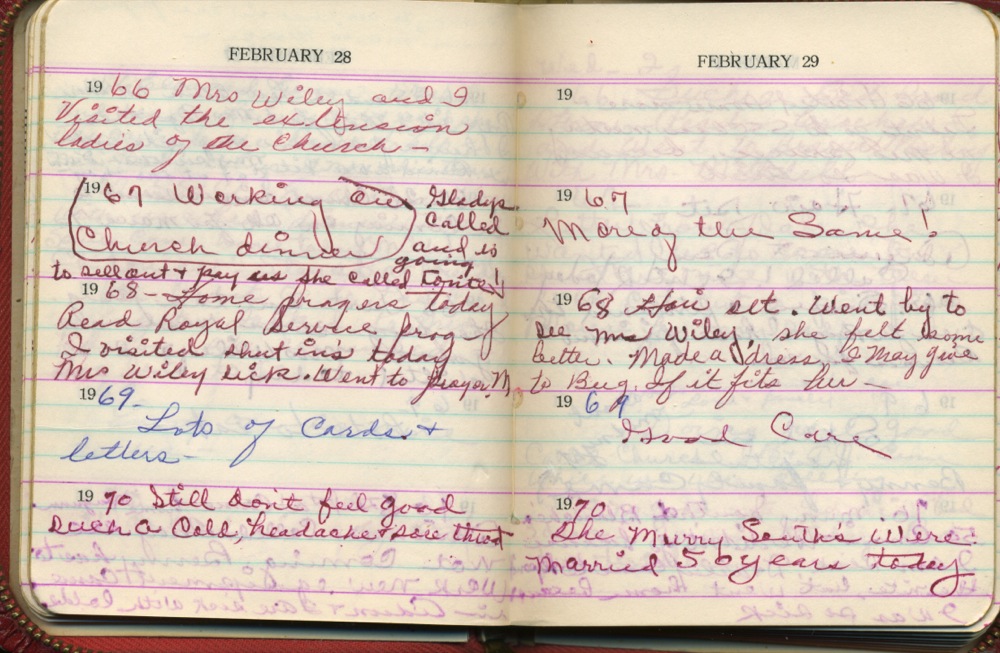 FEBRUARY 28
1966 Mrs Wiley and I
Visited the extension
ladies of the Church -
1967 Working on
Church dinner
Gladys
Called
and is
going
to sell out + pay us she called tonite!
1968 - Some prayers today
Read Royal Service prog
I visited shut in's today
Mrs Wiley sick. Went to prayer M
1969 -
Lots of Cards +
letters -
1970 Still don't feel good
such a Cold, headache + sore throat
FEBRUARY 29
19
1967
More of the Same!
1968 Hair set. Went by to
see Mrs Wiley, she felt some
better. Made a dress, I May give
to Bug. If it fits her -
1969
Good Care
1970
The Murry South's Were
Married 56 years today